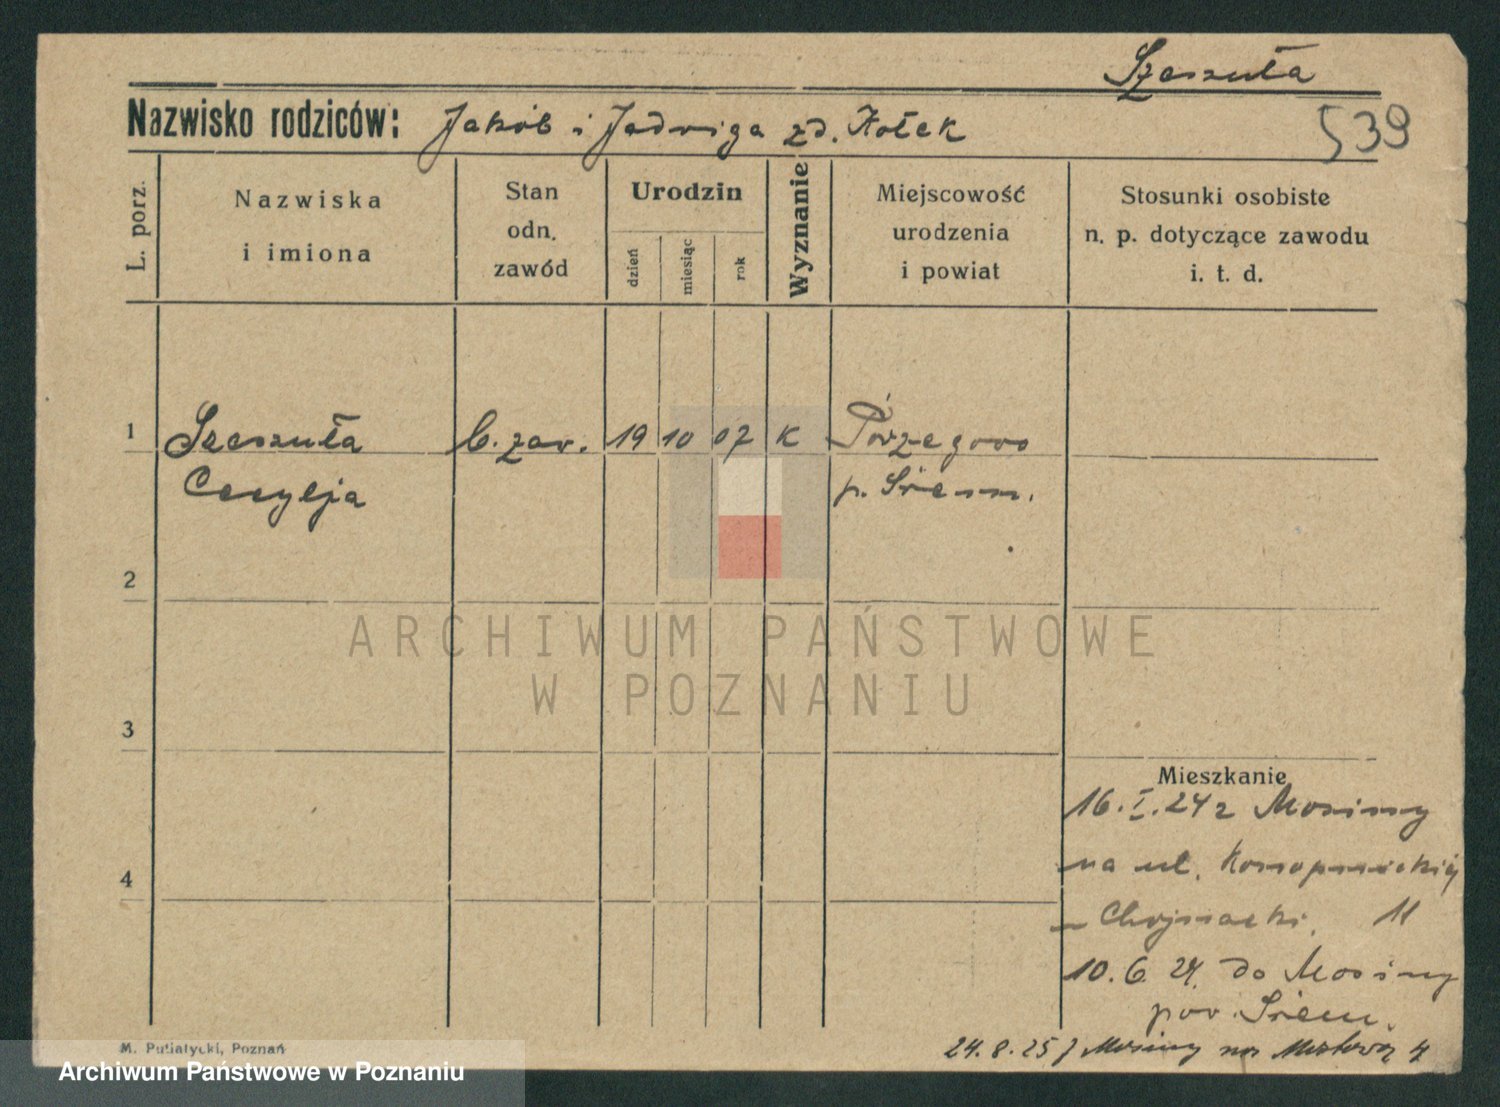 Szeszuła
Nazwisko rodziców: Jakób i Jadwiga zd. Kołek
539
L. porz.
Nazwiska
i imiona
Stan
odn.
zawód
Urodzin
dzień
miesiąc
rok
Wyznanie
Miejscowość
urodzenia
i powiat
Stosunki osobiste
n. p. dotyczące zawodu
i. t. d.
1 Szeszuła b. zaw. 19 10 07 K
Cecylja p. Śrem.
2
ARCHIWUM PAŃSTWOWE
W POZNANIU
3
Mieszkanie
16.I.24 z Mosiny
na ul. Konopnickiej
Chojnacki. 11
4
10.6.24. do Mosiny
pow. Śrem.
24.8.25 z Mosiny na
M. Putiatycki, Poznań
Archiwum Państwowe w Poznaniu